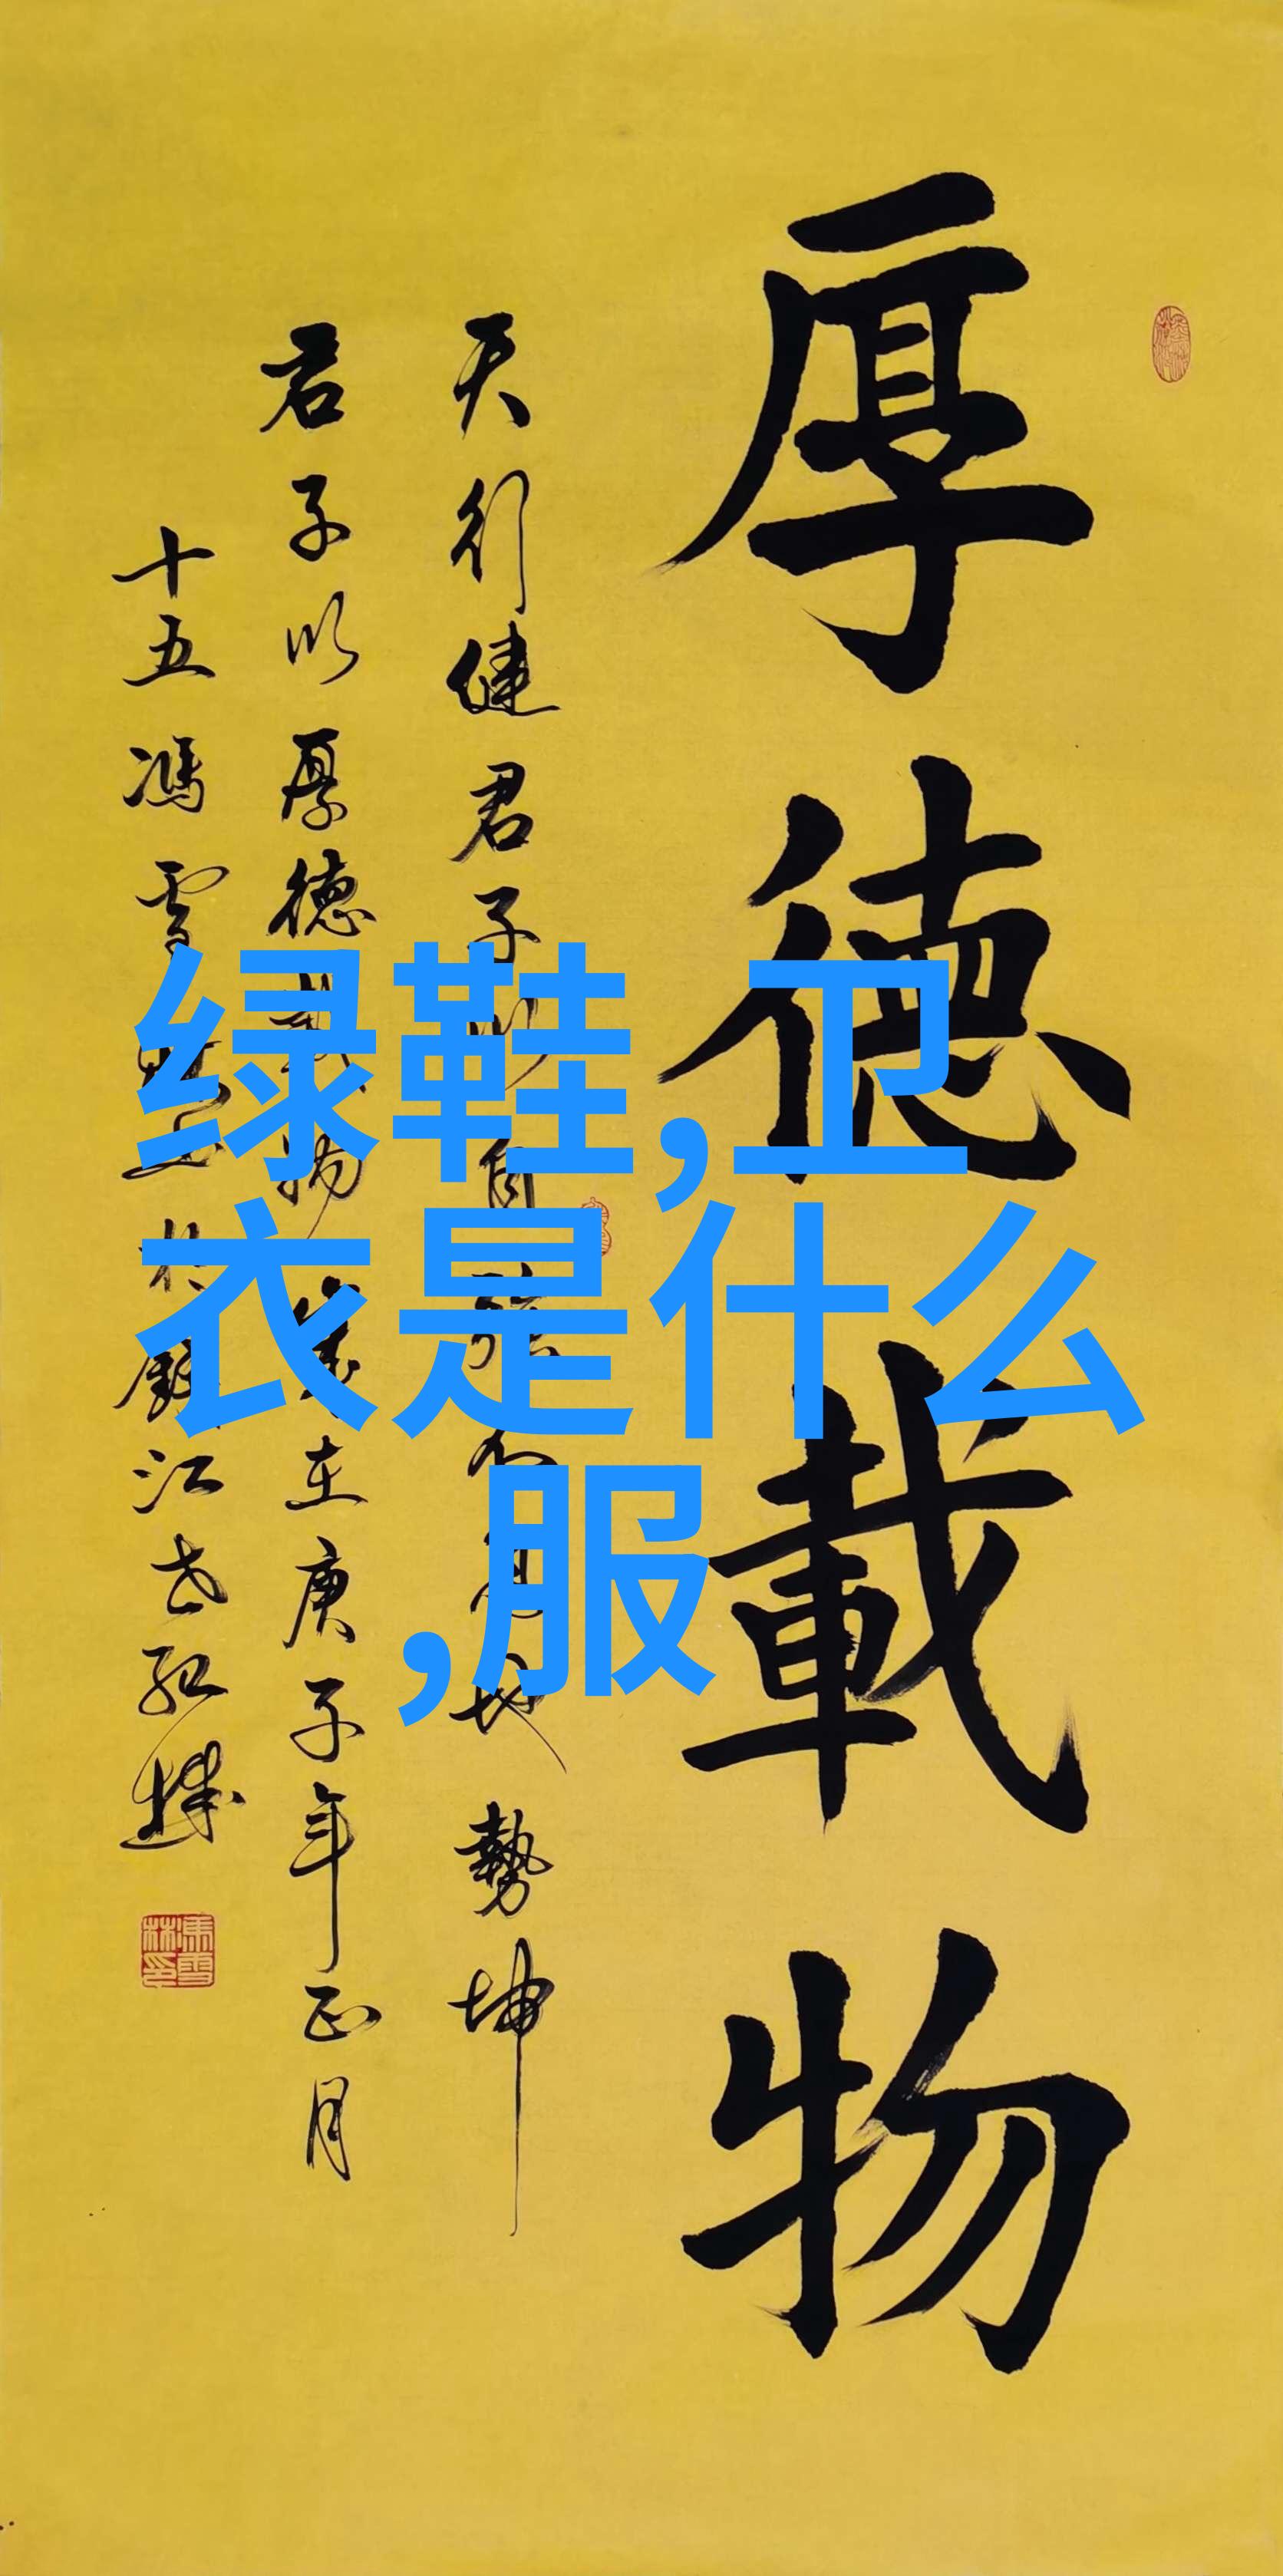 厚德載物
天行健君子以自強不息地勢坤
君子以厚德載物歲在庚子年正月
十五馮雪林書於
江
绿鞋,卫
衣是什么
,服